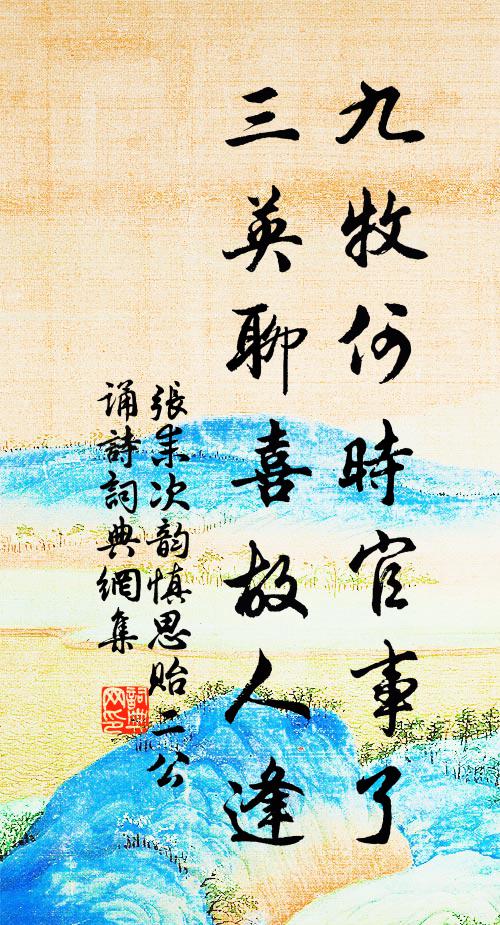 九牧何時官事了
三英聊喜故人逢
張耒次韵慎思貽二公
誦詩詞典網集